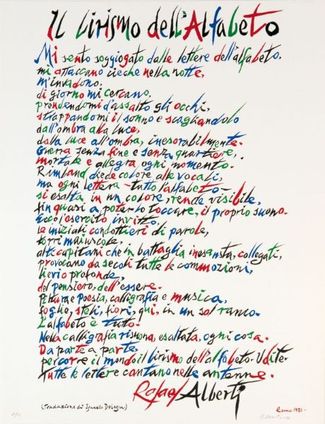 Il lirismo dell'Alfabeto
Mi sento soggiogato dalle lettere dell'alfabeto.
mi attaccano cieche nella notte,
m'invadono.
di giorno mi cercano,
prendendomi d'assalto gli occhi.
strappandomi il sonno e scagliandolo
dall'ombra alla luce,
dalla luce all'ombra, inesorabilmente.
Guerra senza fine e senza quartiere,
mortale e allegra ogni momento.
Rimbaud diede colore alle vocali,
ma ogni lettera – tutto l'alfabeto –
si esalta in un colore, rende visibile,
fin quasi a poterlo toccare, il proprio suono.
Ecco l'esercito invitto,
le iniziali condottieri di parole,
torri maiuscole,
alti capitani che in battaglia inesausta, collegati,
provocano da secoli tutte le commozioni,
lievi o profonde,
del pensiero, dell'essere.
Pittura e poesia, calligrafia e musica,
foglie, steli, fiori, qui, in un sol ramo.
L'alfabeto è tutto.
Nella calligrafia risuona, esaltata, ogni cosa.
Da parte a parte,
percorre il mondo il lirismo dell'alfabeto. Udite.
Tutte le lettere cantano nelle antenne.
Rafael Alberti
(Traduzione di Ignazio Delogu)
Roma 1981